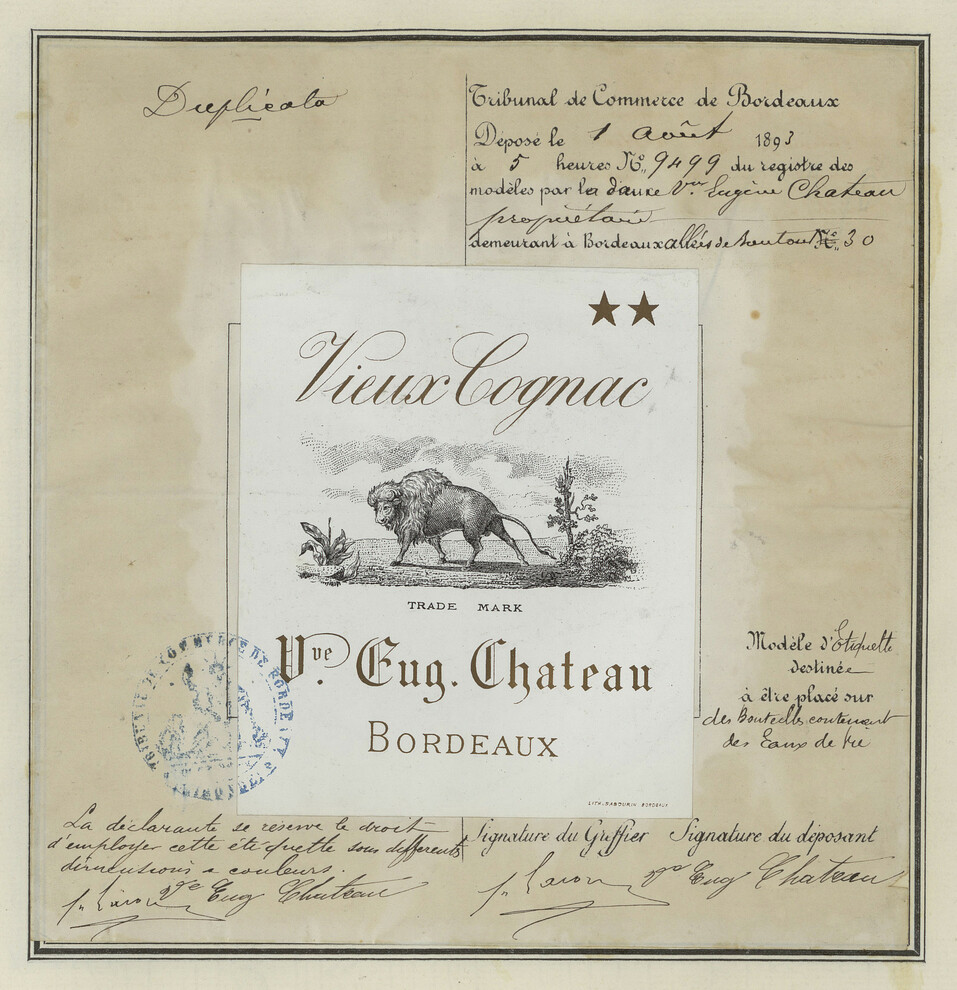 Duplicata
Tribunal de Commerce de Bordeaux
Déposé le 1 août 1893
à 5 heures No. 9499 du registre des
modèles par la dame Vve Eugène Chateau
propriétaire
demeurant à Bordeaux allées de No. 30
★★
Vieux Cognac
TRADE MARK
Vve. Eug. Chateau
BORDEAUX
LITH. SABOURIN BORDEAUX
TRIBUNAL DE COMMERCE DE BORDEAUX
Modèle d'Etiquette
destinée
à être placé sur
des Bouteilles contenant
des Eaux de Vie
La déclarante se réserve le droit
d'employer cette étiquette sous differents
dimensions & couleurs.
Vve Eug Chateau
Signature du Greffier Signature du déposant
Vve Eug Chateau